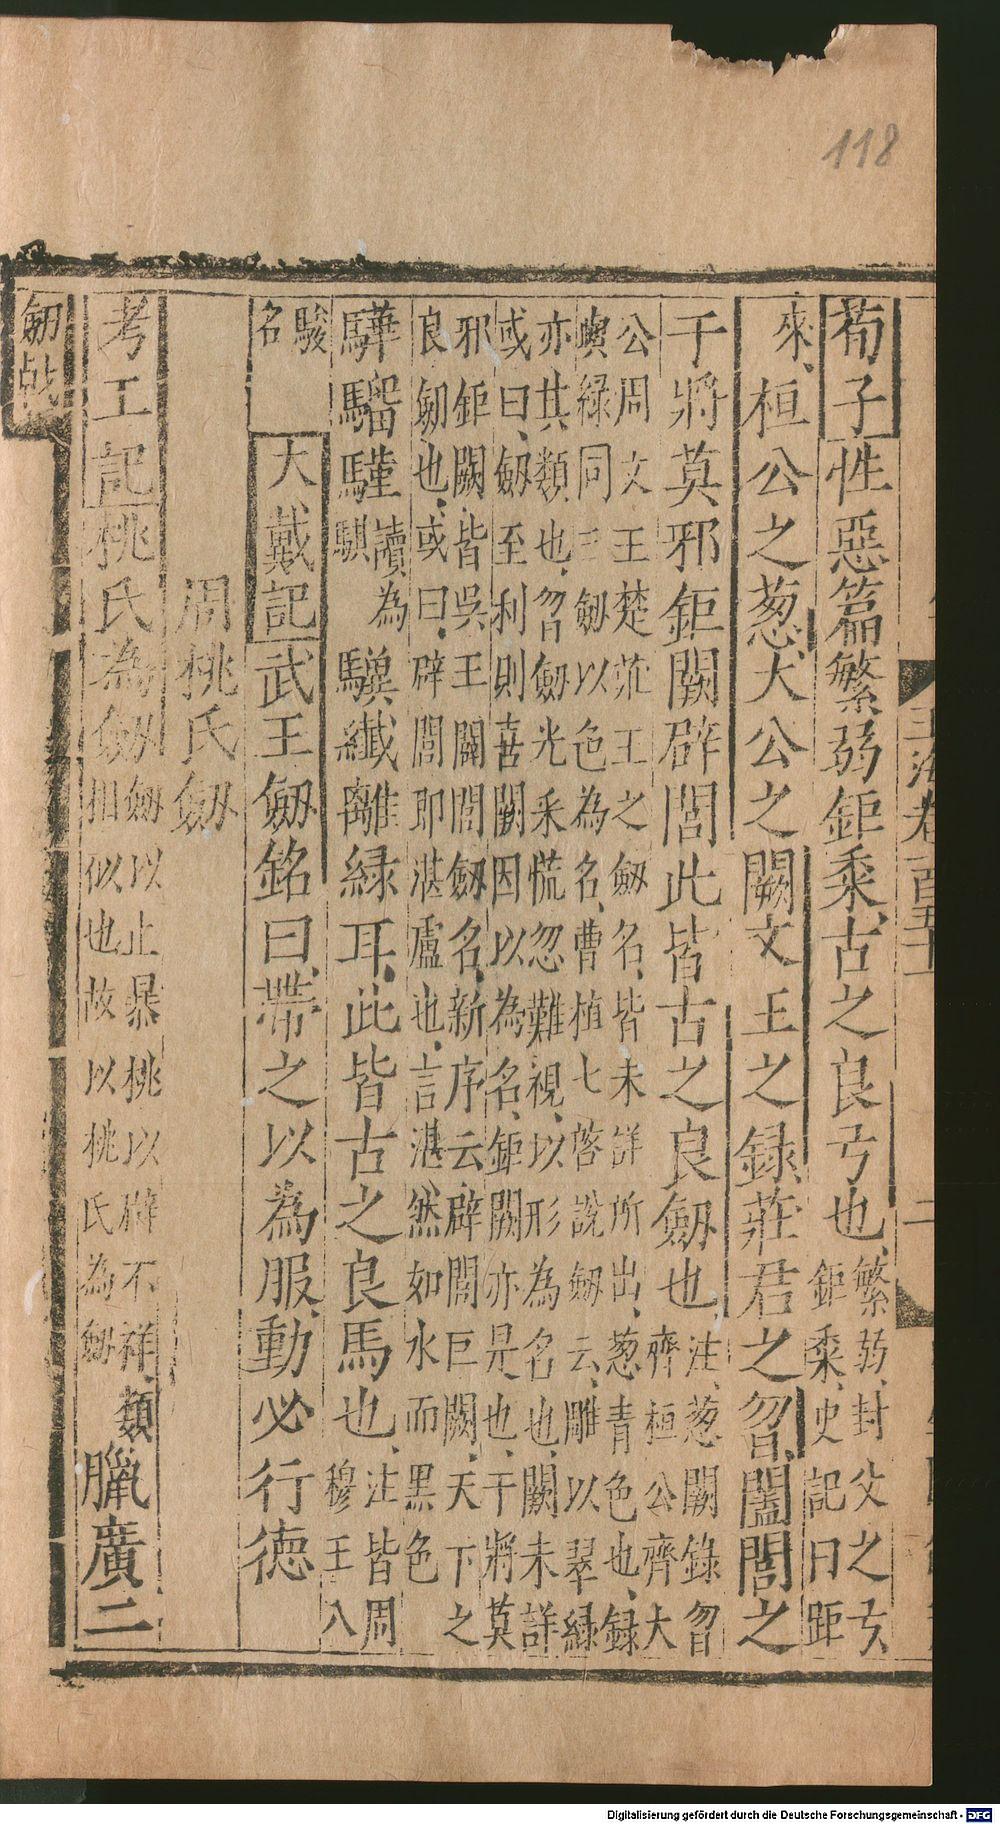 118
玉海卷百五十一 二
荀子性惡篇繁弱鉅黍古之良弓也、繁弱、封父之弓鉅黍、史記曰距
來、桓公之葱大公之闕文王之録莊君之曶闔閭之
干將莫邪鉅闕辟閭此皆古之良劒也、注、葱闕錄曶齊桓公齊大
公周文王楚莊王之劒名、皆未詳所出、葱青色也、録
與緑同二劒以色為名、曹植七啓說劒云、雕以翠緑
亦其類也、曶劒光采慌忽難視、以形為名也、闕未詳
或曰、劒至利則喜闕因以為名、鉅闕亦是也、干將莫
邪鉅闕皆吳王闔閭劒名、新序云、辟閭巨闕、天下之
良劒也、或曰、辟閭即湛盧也、言湛然如水而黑色
驊騮讀為騏驥纖離緑耳、此皆古之良馬也、注皆周穆王八
駿名 大戴記武王劒銘曰、帶之以為服、動必行德
周桃氏劒
考工記桃氏為劒劒以止暴桃以辟不祥、類相似也故以桃氏為劒臘廣二
劒戟
Digitalisierung gefördert durch die Deutsche Forschungsgemeinschaft - DFG